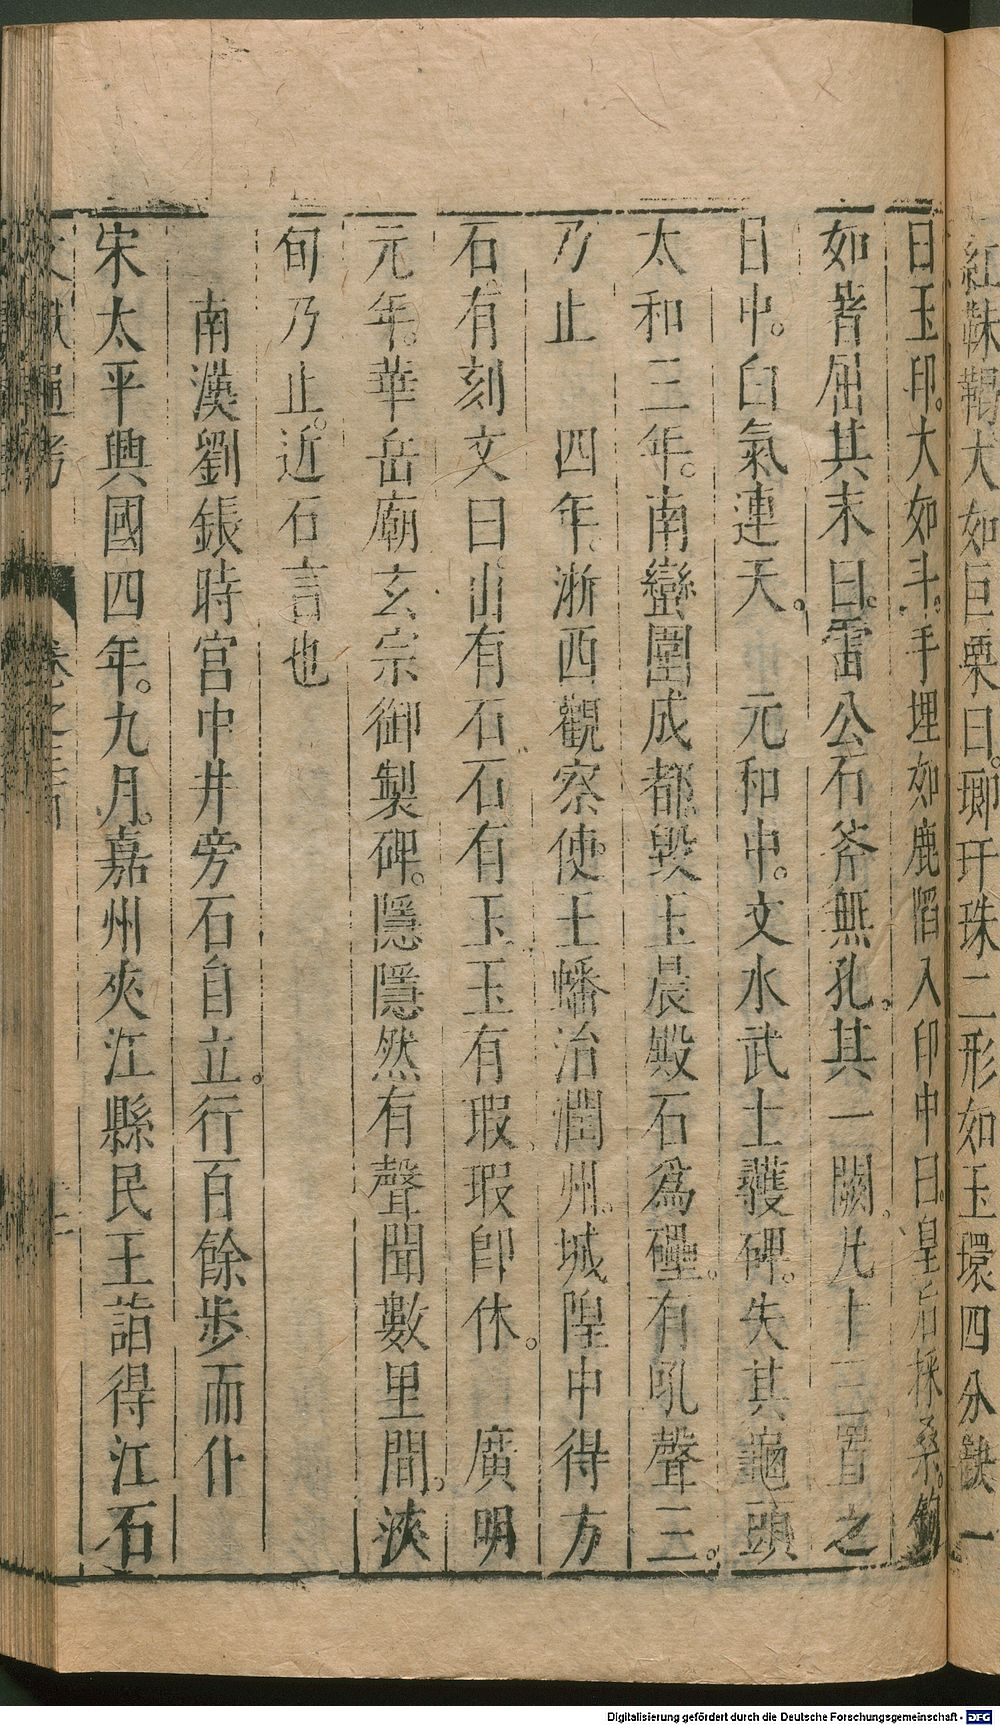 紅靺鞨大如巨栗曰。瑯玕珠二形如玉環四分缺一
曰玉印。大如斗。手埋如鹿陷入印中曰。皇后採桑。鉤
如箸屈其末曰。雷公石斧無孔。其一闕。凡十三寘之
日中。白氣連天。 元和中。文水武士彠碑。失其龜頭
太和三年。南蠻圍成都。毀玉晨殿石爲礨。有吼聲三。
乃止 四年。浙西觀察使王蟠治潤州。城隍中得方
石。有刻文曰。山有石。石有玉玉有瑕。瑕即休。 廣明
元年。華岳廟玄宗御製碑。隱隱然有聲聞數里間。浹
旬乃止。近石言也
南漢劉鋹時宮中井旁石自立。行百餘步而仆
宋太平興國四年。九月。嘉州夾江縣民王詣得江石
卷之三百
Digitalisierung gefördert durch die Deutsche Forschungsgemeinschaft - DFG